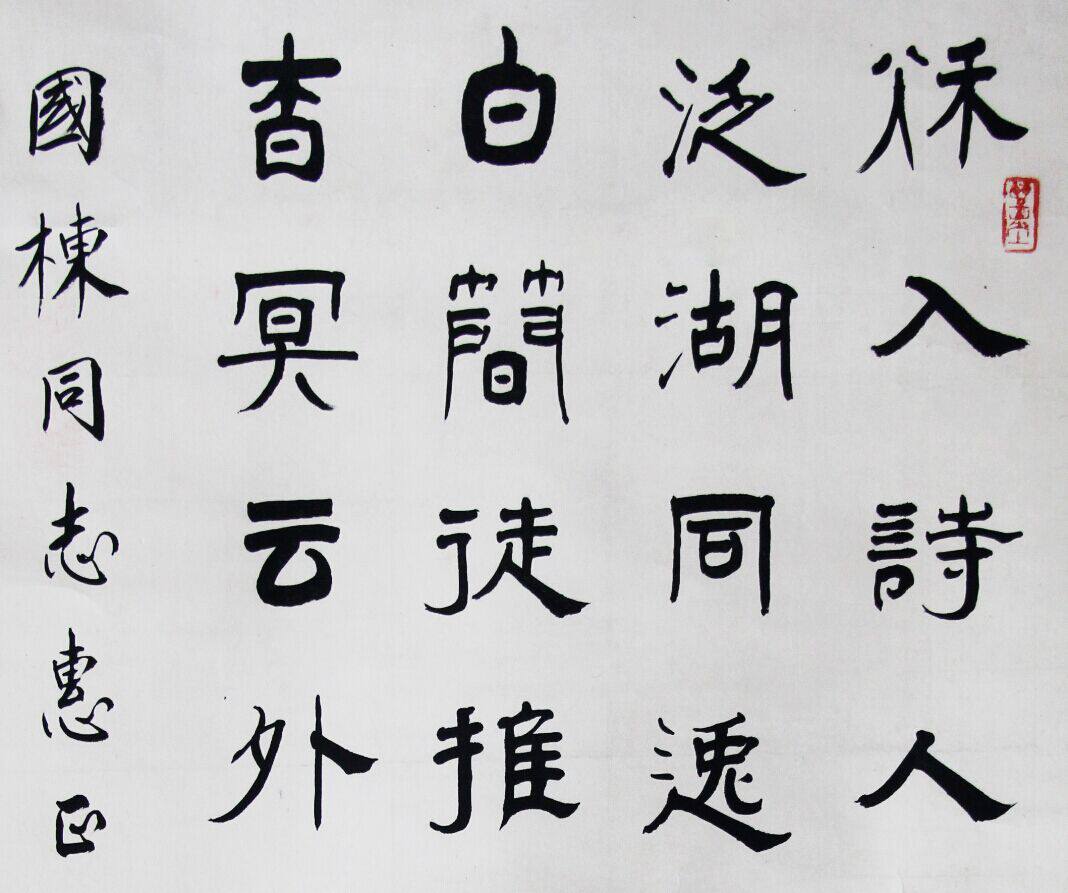 秌入詩人
泛湖同逸
白簡徒推
杳冥云外
國棟同志惠正